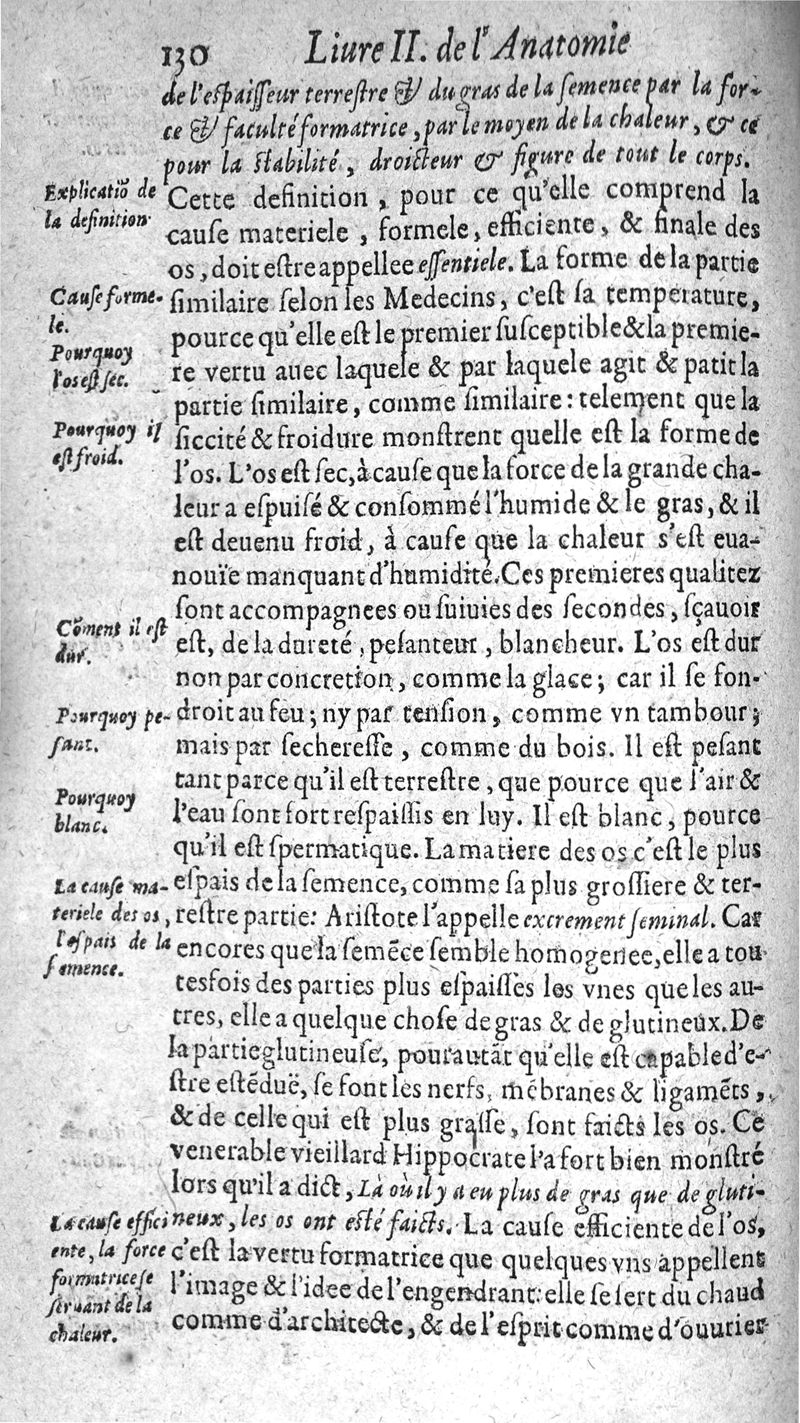 130 Liure II. de l'Anatomie
de l'espaisseur terrestre & du gras de la semence par la for-
ce & faculté formatrice, par le moyen de la chaleur, & ce
pour la stabilité, droicteur & figure de tout le corps.
Explicatiõ de
la definition.
Cette definition, pour ce qu'elle comprend la
cause materiele, formele, efficiente, & finale des
os, doit estre appellee essentiele. La forme de la partie
Cause forme-
le.
similaire selon les Medecins, c'est sa temperature,
pource qu'elle est le premier susceptible & la premie-
Pourquoy
l'os est sec.
re vertu auec laquele & par laquele agit & patit la
partie similaire, comme similaire: telement que la
Pourquoy il
est froid.
siccité & froidure monstrent quelle est la forme de
l'os. L'os est sec, à cause que la force de la grande cha-
leur a espuisé & consommé l'humide & le gras, & il
est deuenu froid, à cause que la chaleur s'est eua-
nouïe manquant d'humidité. Ces premieres qualitez
sont accompagnees ou suiuies des secondes, sçauoir
Cõment il est
dur.
est, de la dureté, pesanteur, blancheur. L'os est dur
non par concretion, comme la glace; car il se fon-
Pourquoy pe-
sant.
droit au feu; ny par tension, comme vn tambour;
mais par secheresse, comme du bois. Il est pesant
tant parce qu'il est terrestre, que pource que l'air &
Pourquoy
blanc.
l'eau sont fort respaissis en luy. Il est blanc, pource
qu'il est spermatique. La matiere des os c'est le plus
La cause ma-
teriele des os,
l'espais de la
semence.
espais de la semence, comme sa plus grossiere & ter-
restre partie: Aristote l'appelle excrement seminal. Car
encores que la semẽce semble homogenee, elle a tou
tesfois des parties plus espaisses les vnes que les au-
tres, elle a quelque chose de gras & de glutineux. De
la partie glutineuse, pourautãt qu'elle est capable d'e-
stre estẽduë, se font les nerfs, mẽbranes & ligamẽts,
& de celle qui est plus grasse, sont faicts les os. Ce
venerable vieillard Hippocrate l'a fort bien monstré
lors qu'il a dict, Là où il y a eu plus de gras que de gluti-
La cause effici
ente, la force
formatrice se
seruant de la
chaleur.
neux, les os ont esté faicts. La cause efficiente de l'os,
c'est la vertu formatrice que quelques vns appellent
l'image & l'idee de l'engendrant: elle se sert du chaud
comme d'architecte, & de l'esprit comme d'ouurier